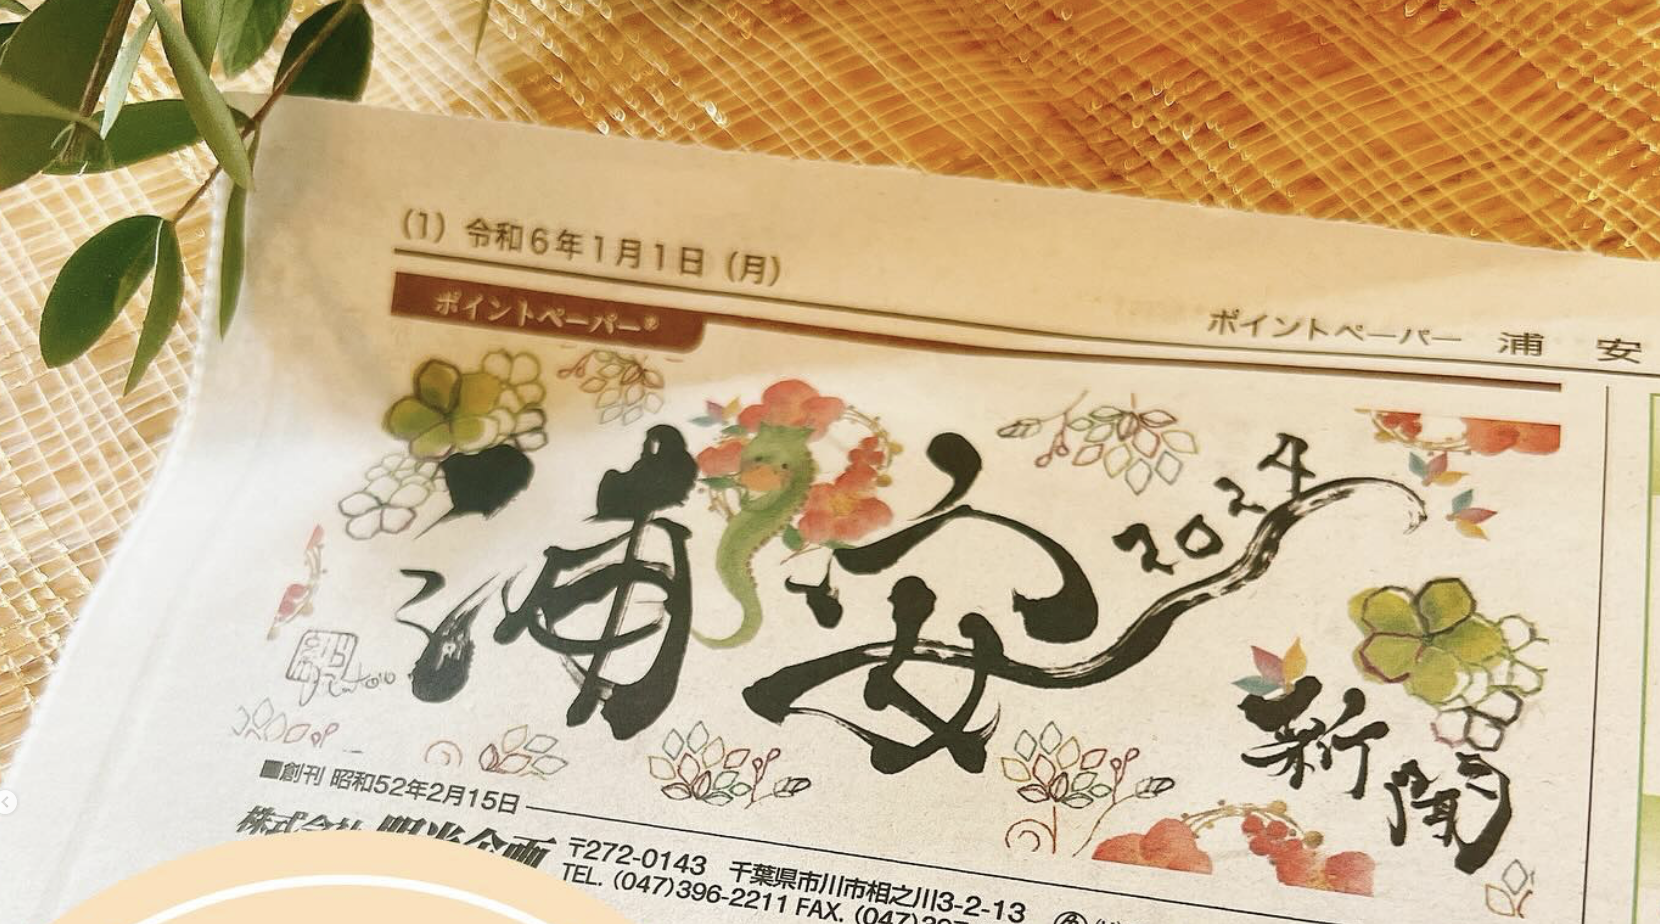 (1) 令和6年1月1日（月）
ポイントペーパー 浦 安
ポイントペーパー®
浦安
2024
新聞
■創刊 昭和52年2月15日
株式会社 明光企画
〒272-0143 千葉県市川市相之川3-2-13
TEL. (047)396-2211 FAX. (047)